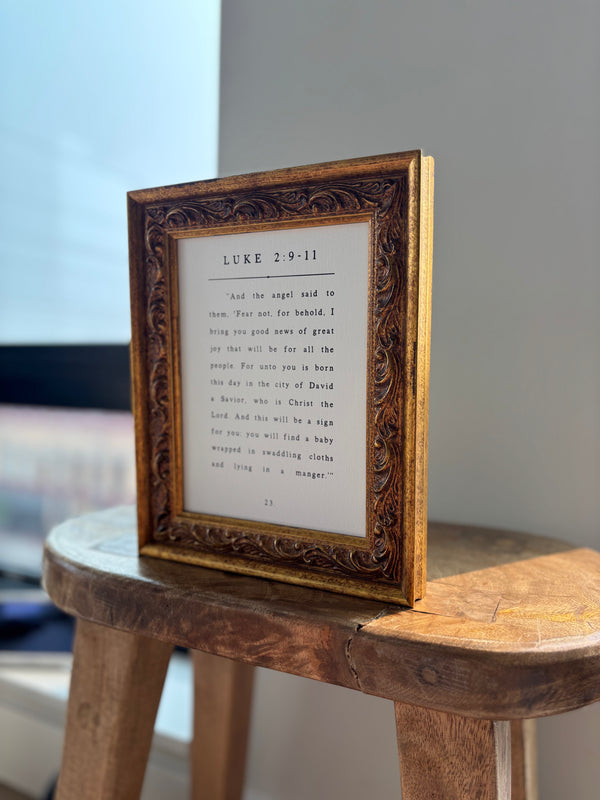 LUKE 2:9-11
"And the angel said to
them, 'Fear not, for behold, I
bring you good news of great
joy that will be for all the
people. For unto you is born
this day in the city of David
a Savior, who is Christ the
Lord. And this will be a sign
for you: you will find a baby
wrapped in swaddling cloths
and lying in a manger.'"
23.